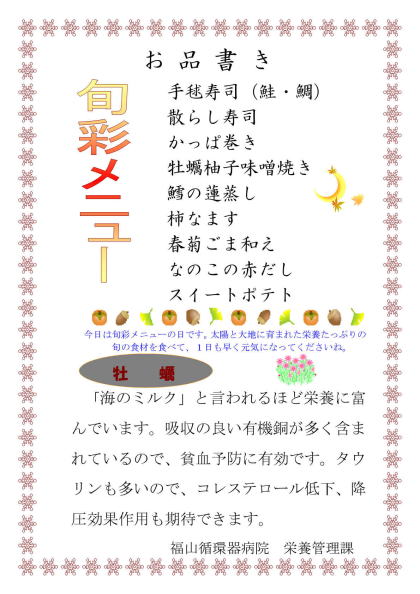 お品書き
旬彩メニュー
手毬寿司（鮭・鯛）
散らし寿司
かっぱ巻き
牡蠣柚子味噌焼き
鱈の蓮蒸し
柿なます
春菊ごま和え
なのこの赤だし
スイートポテト
今日は旬彩メニューの日です。太陽と大地に育まれた栄養たっぷりの
旬の食材を食べて、１日も早く元気になってくださいね。
牡　蠣
「海のミルク」と言われるほど栄養に富
んでいます。吸収の良い有機銅が多く含ま
れているので、貧血予防に有効です。タウ
リンも多いので、コレステロール低下、降
圧効果作用も期待できます。
福山循環器病院　栄養管理課